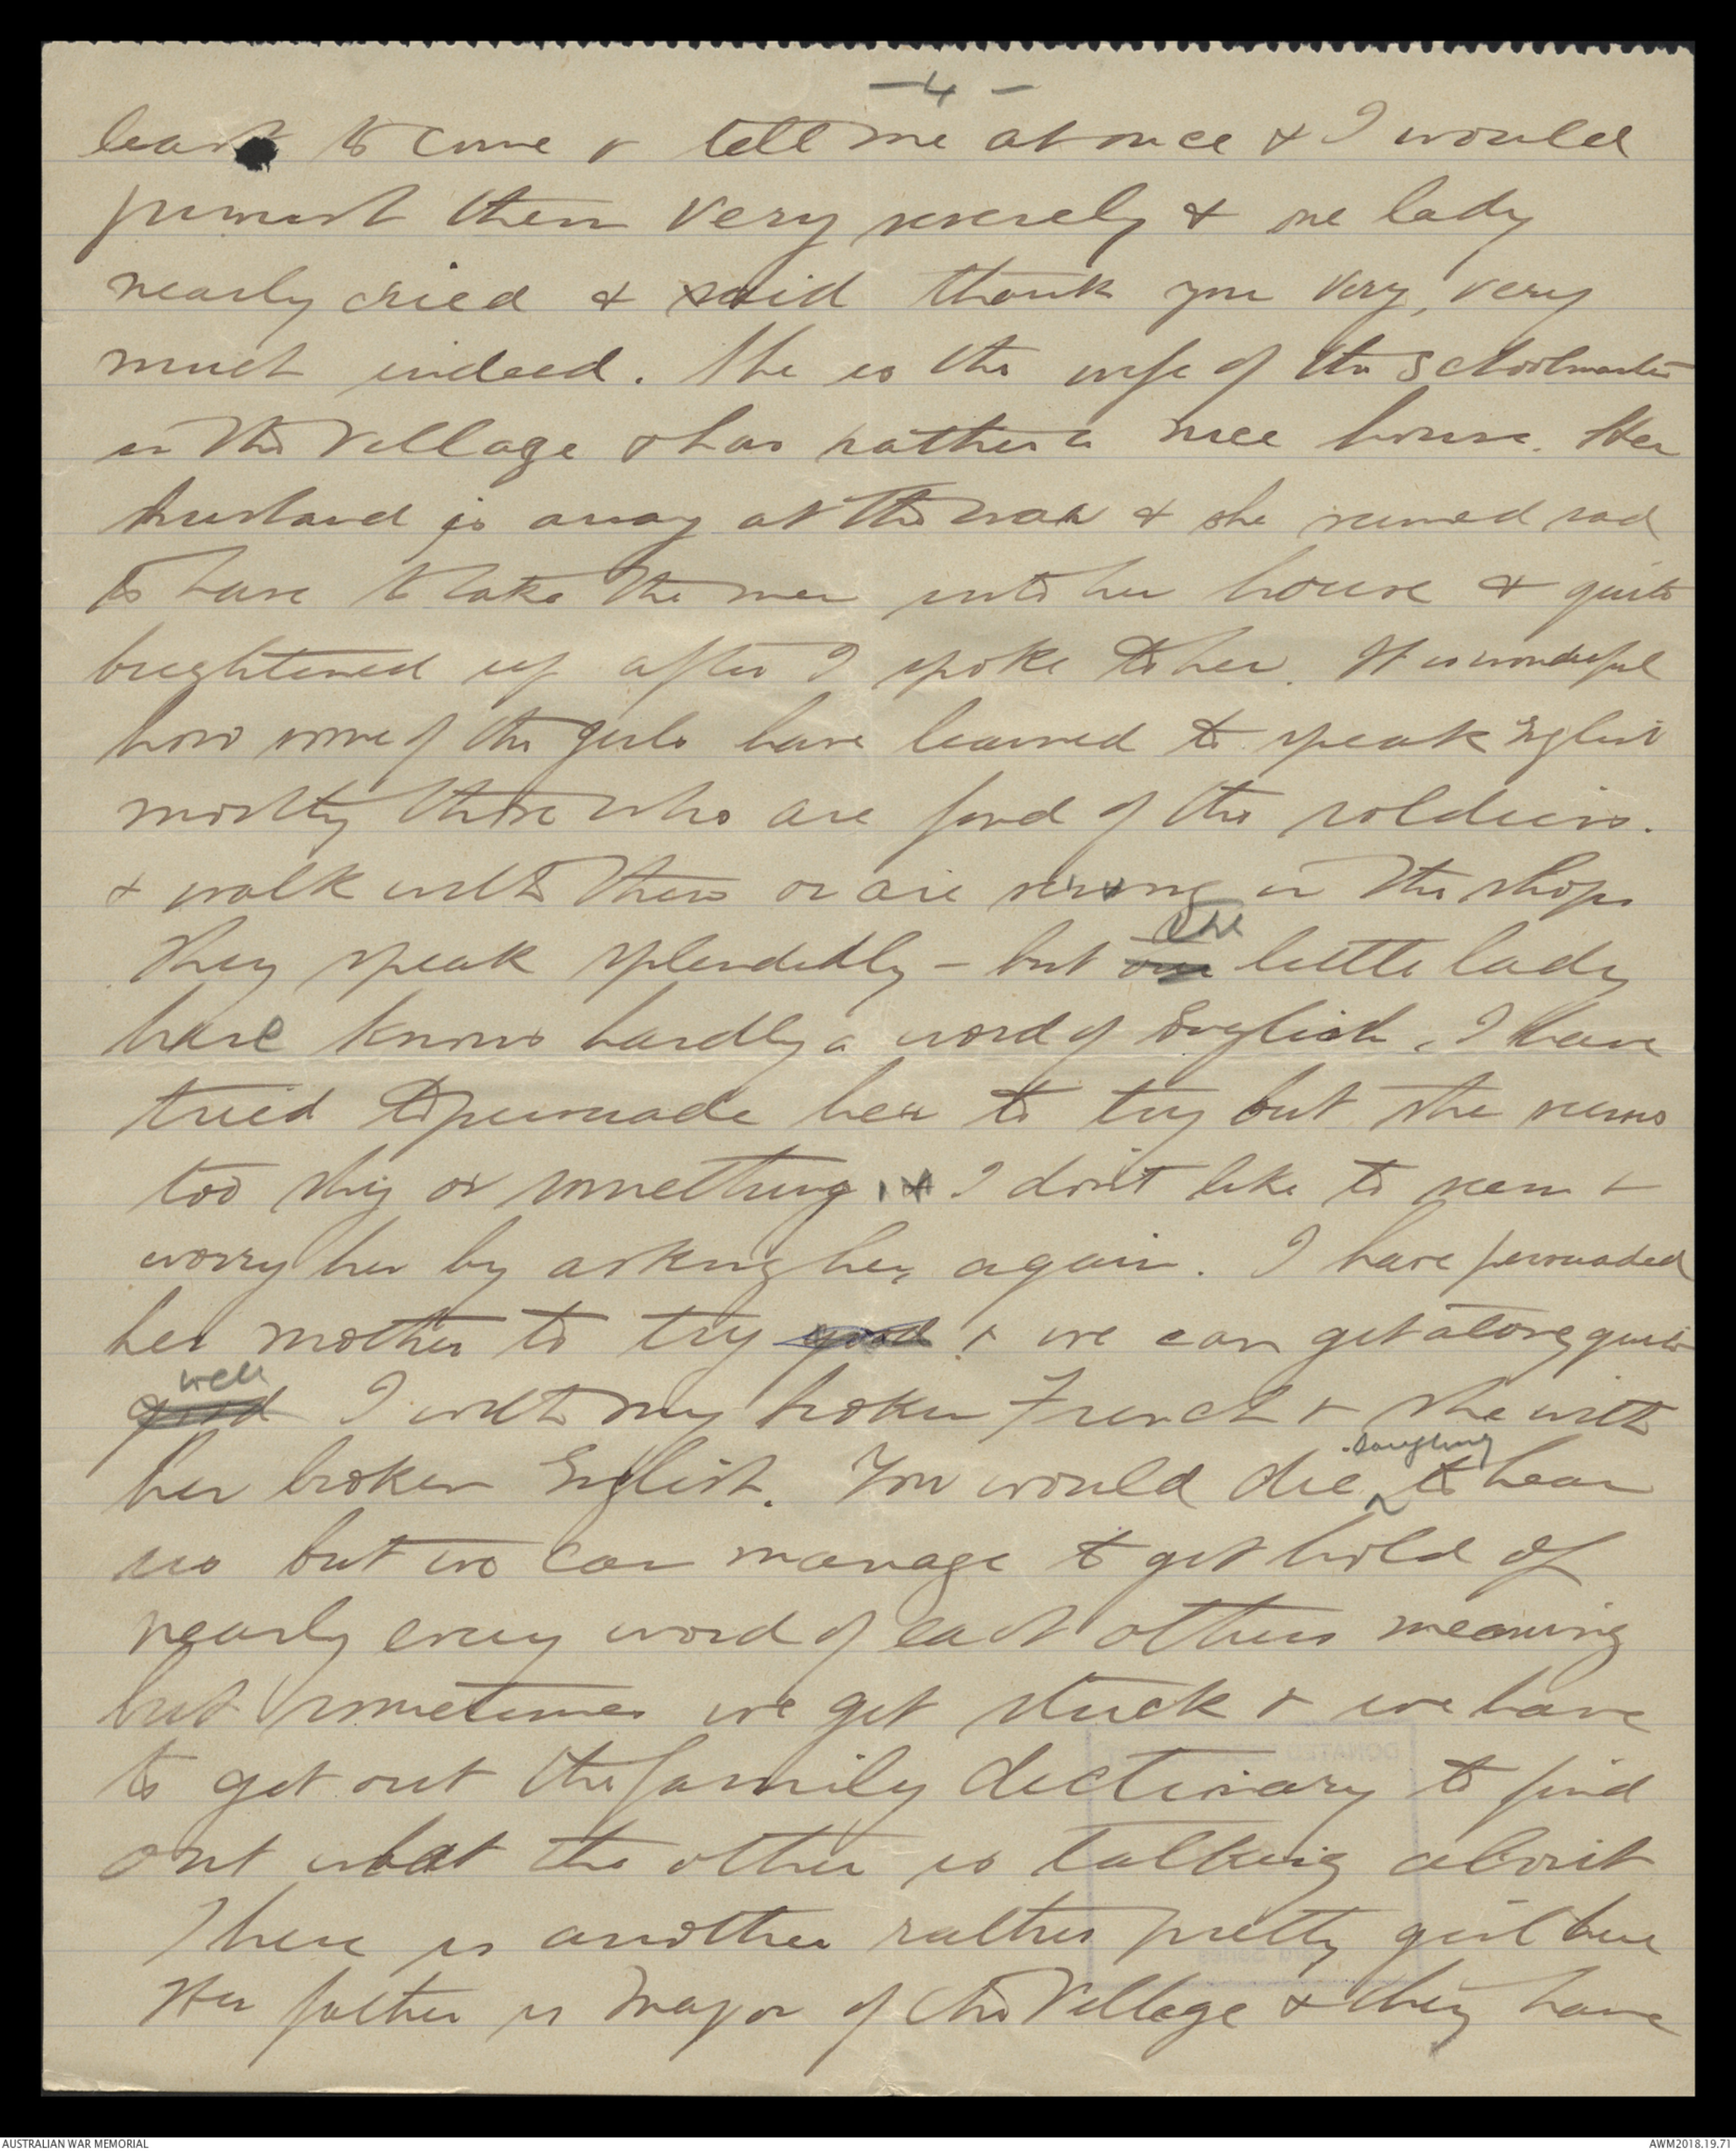 -4-
least to come & tell me at once & I would
punish them very severely & one lady
nearly cried & said thank you very, very
much indeed. She is the wife of the Schoolmaster
in the Village & has rather a nice house. Her
husband is away at the war & she seemed sad
to have to take the men into her house & quite
brightened up after I spoke to her. It is wonderful
how some of the girls have learned to speak English
mostly those who are fond of the soldiers.
& walk with them or are serving in the shops
they speak splendidly - but our the little lady
here knows hardly a word of English, I have
tried to persuade her to try but she seems
too shy or something, & I don't like to seem to
worry her by asking her again. I have persuaded
her mother to try good & we can get along quite
good well I with my broken French & she with
her broken English. You would die laughing to hear
us but we can manage to get hold of
nearly every word of each others meaning
but sometimes we get stuck & we have
to get out the family dictionary to find
out what the other is talking about
There is another rather pretty girl here
Her father is Mayor of the Village & they have
AUSTRALIAN WAR MEMORIAL
AWM2018.19.71